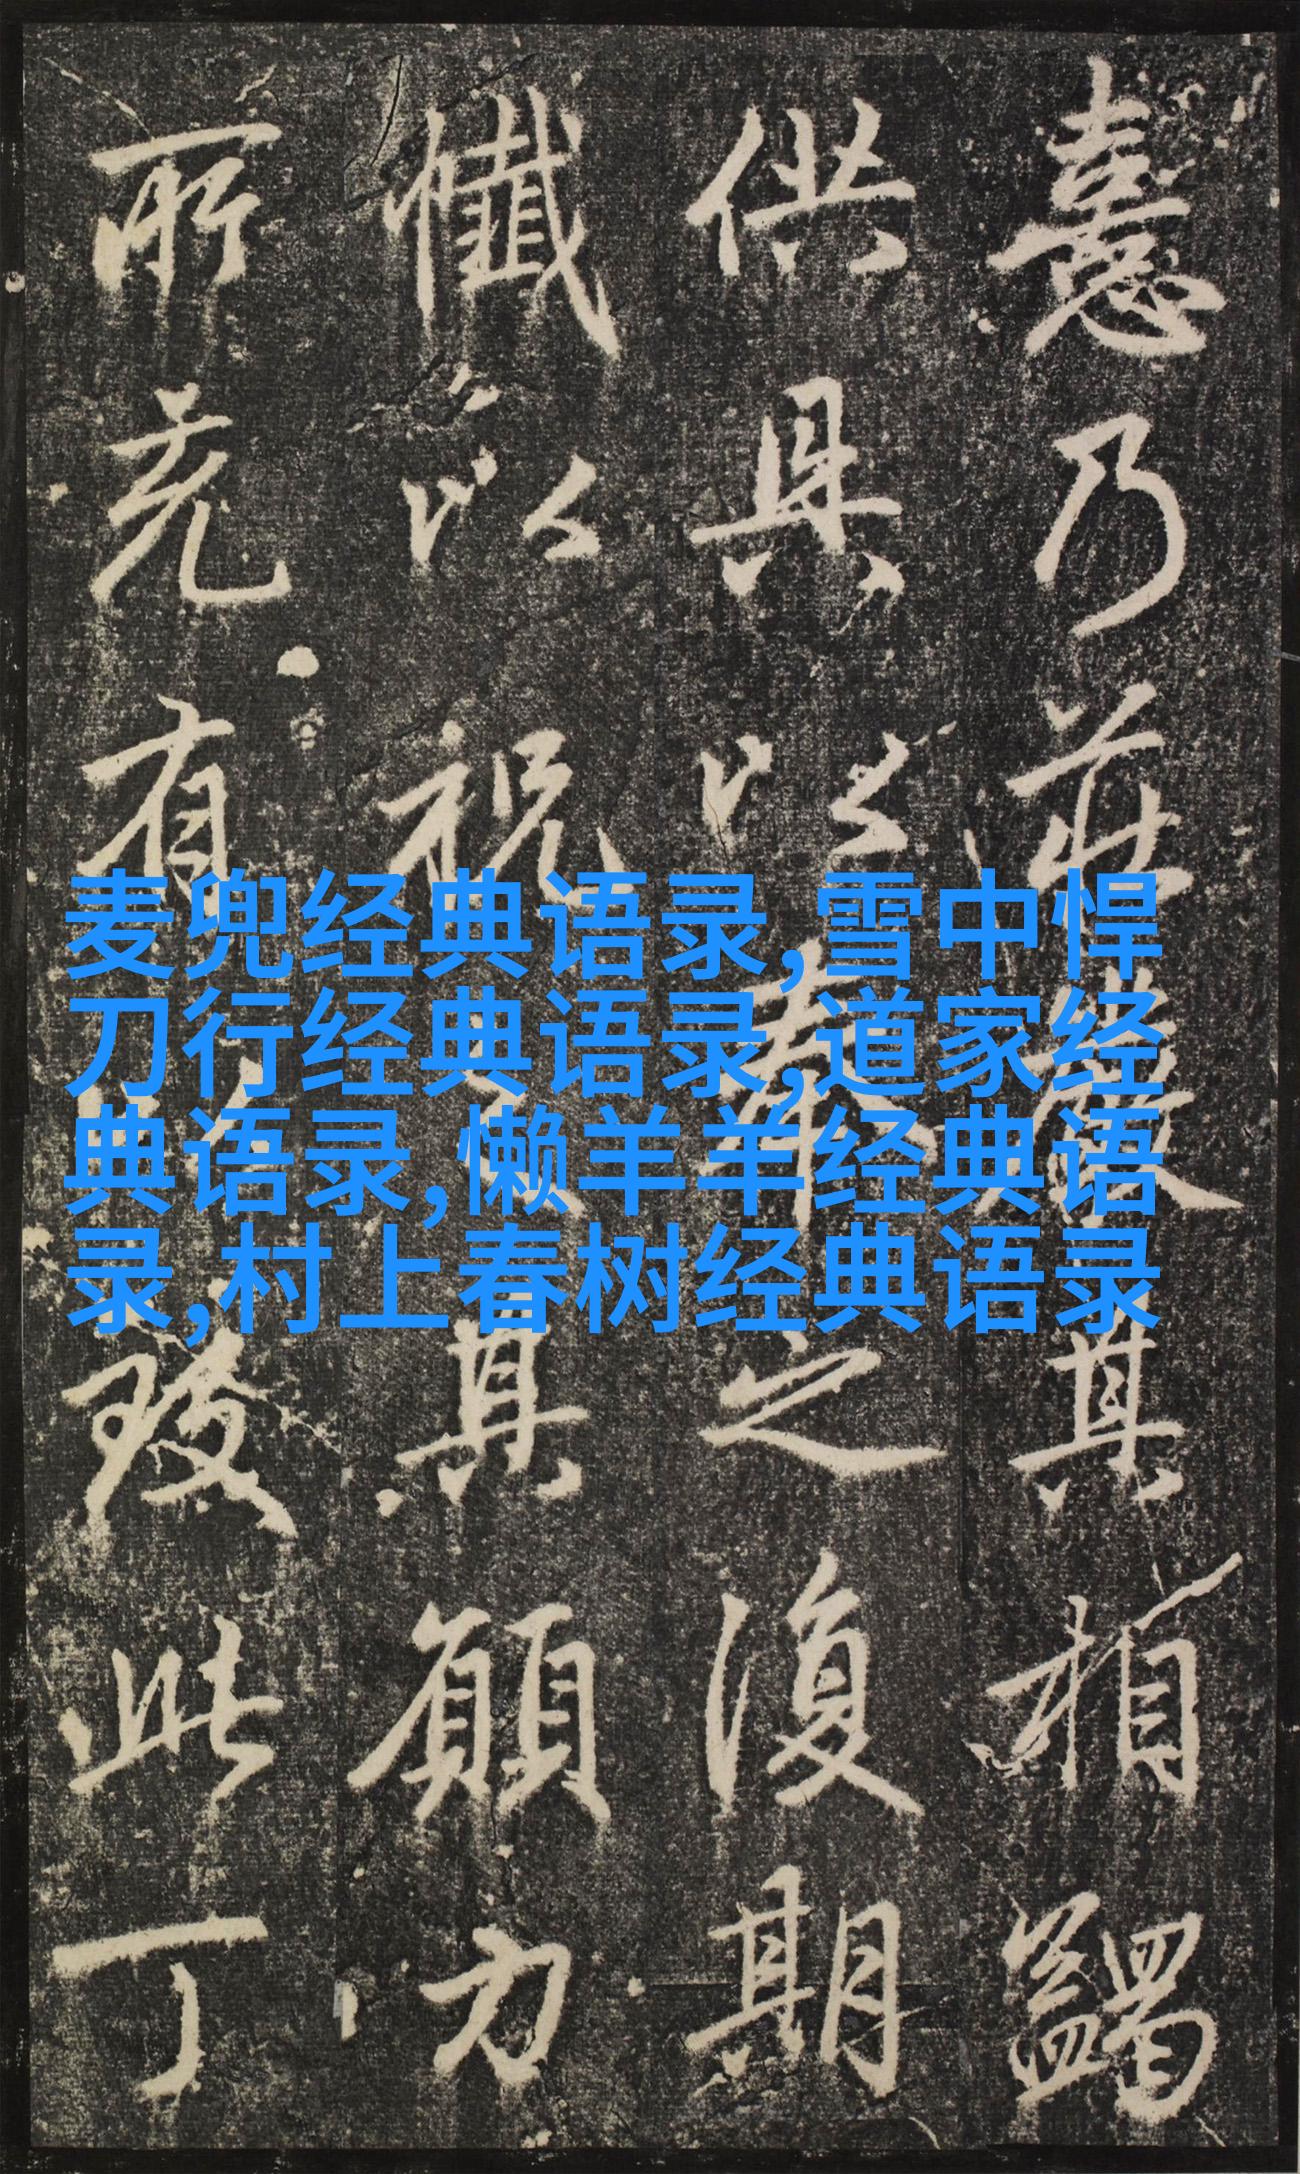 憙乃莊嚴其相蠲
供具以奉之復期
懺以祝其願力
所有此丁
麦兜经典语录,雪中悍
刀行经典语录,道家经
典语录,懒羊羊经典语
录,村上春树经典语录